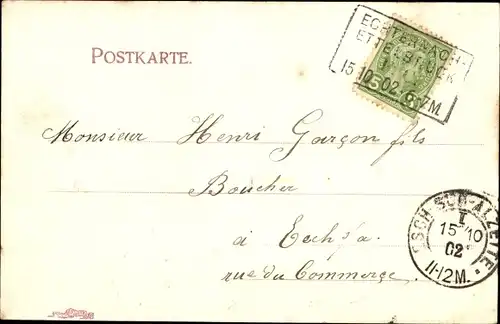 POSTKARTE.
ECHTERNACH-
ETTELBRÜCK
15 10 02 6-7M.
5 5
Monsieur Henri Garçon fils
Boucher
à Esch s/a.
rue du Commerce.
ESCH SUR ALZETTE
I
15 10
02
11-12M.